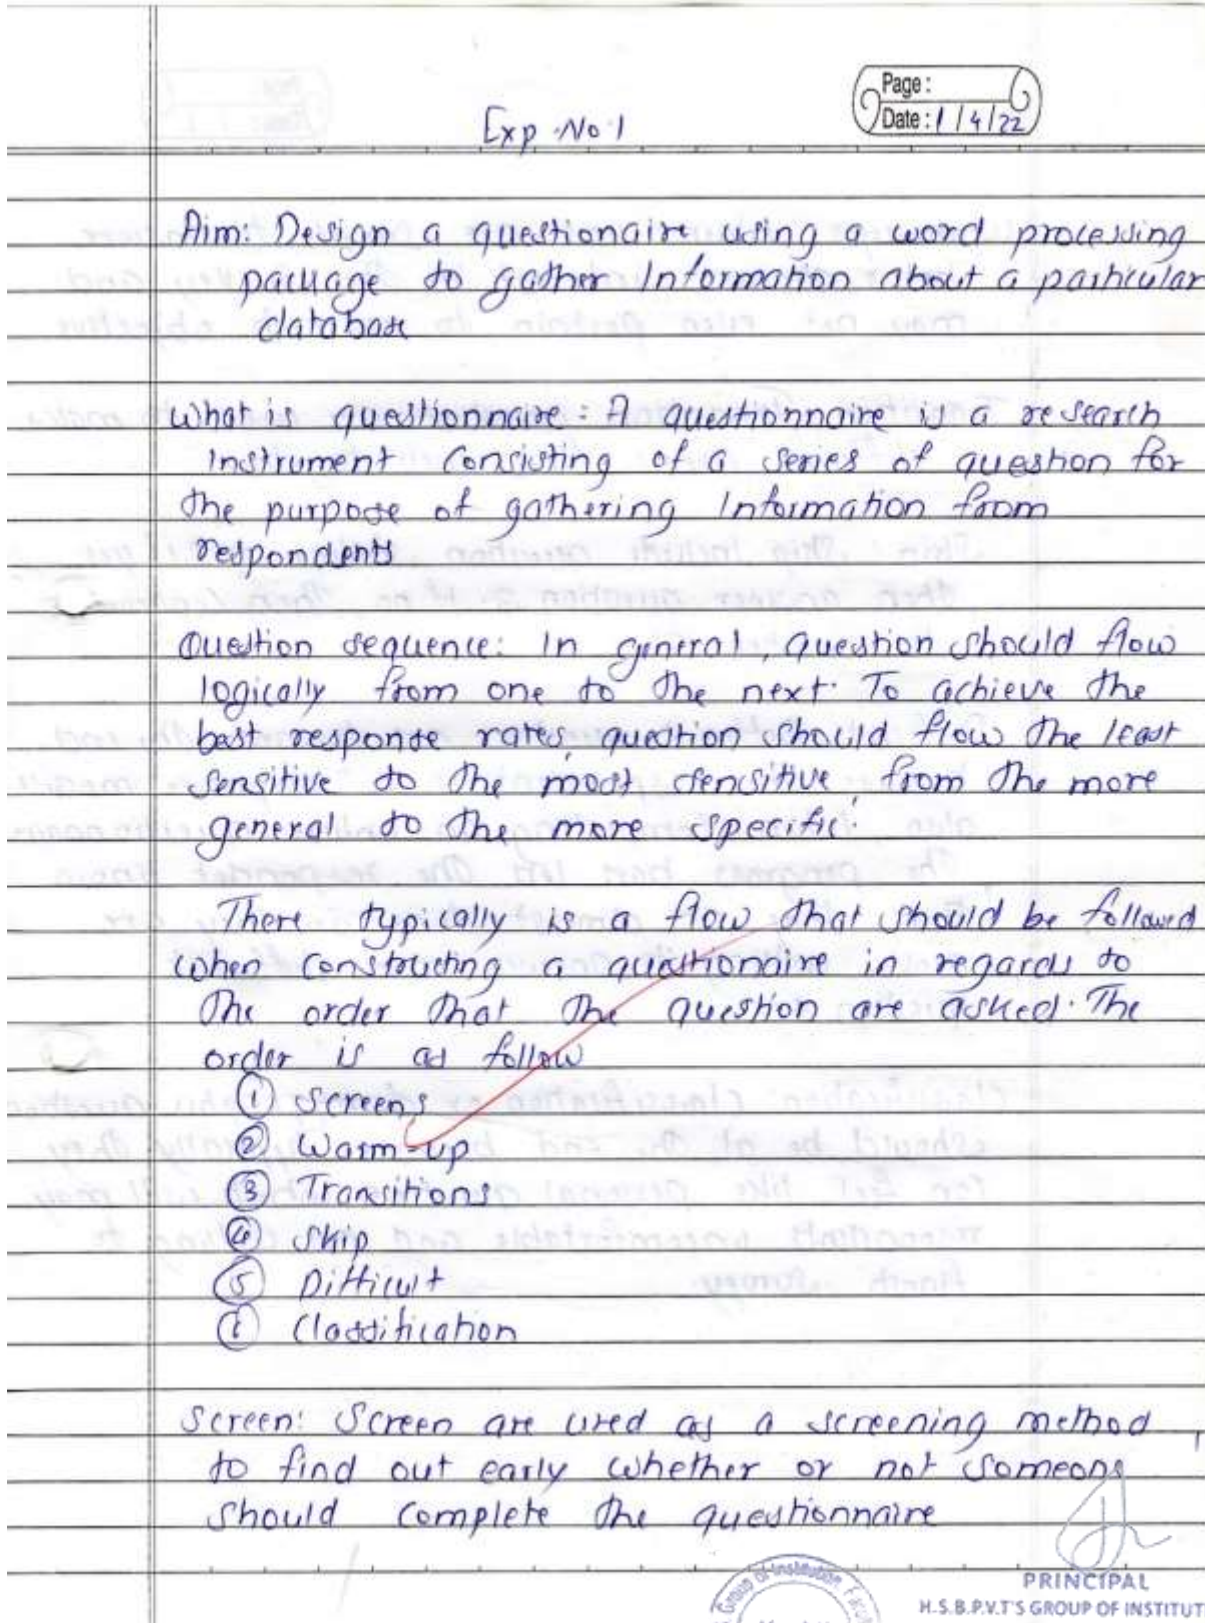 Page :
Exp. No. 1
Date : 1 / 4 / 22
Aim: Design a questionaire using a word processing
package to gather Information about a particular
database
What is questionnaire : A questionnaire is a research
instrument Consisting of a series of question for
the purpose of gathering Information from
respondents
Question sequence: In general, question should flow
logically from one to the next. To achieve the
best response rates, question should flow the least
sensitive to the most sensitive, from the more
general to the more specific.
There typically is a flow that should be followed
when constructing a questionaire in regards to
the order that the question are asked. The
order is as follow
① Screens
② Warm-up
③ Transitions
④ Skip
⑤ Difficult
⑥ Classification
Screen: Screen are used as a screening method
to find out early whether or not someone
should complete the questionnaire
PRINCIPAL
H.S.B.P.V.T'S GROUP OF INSTITUT
Group of Institution